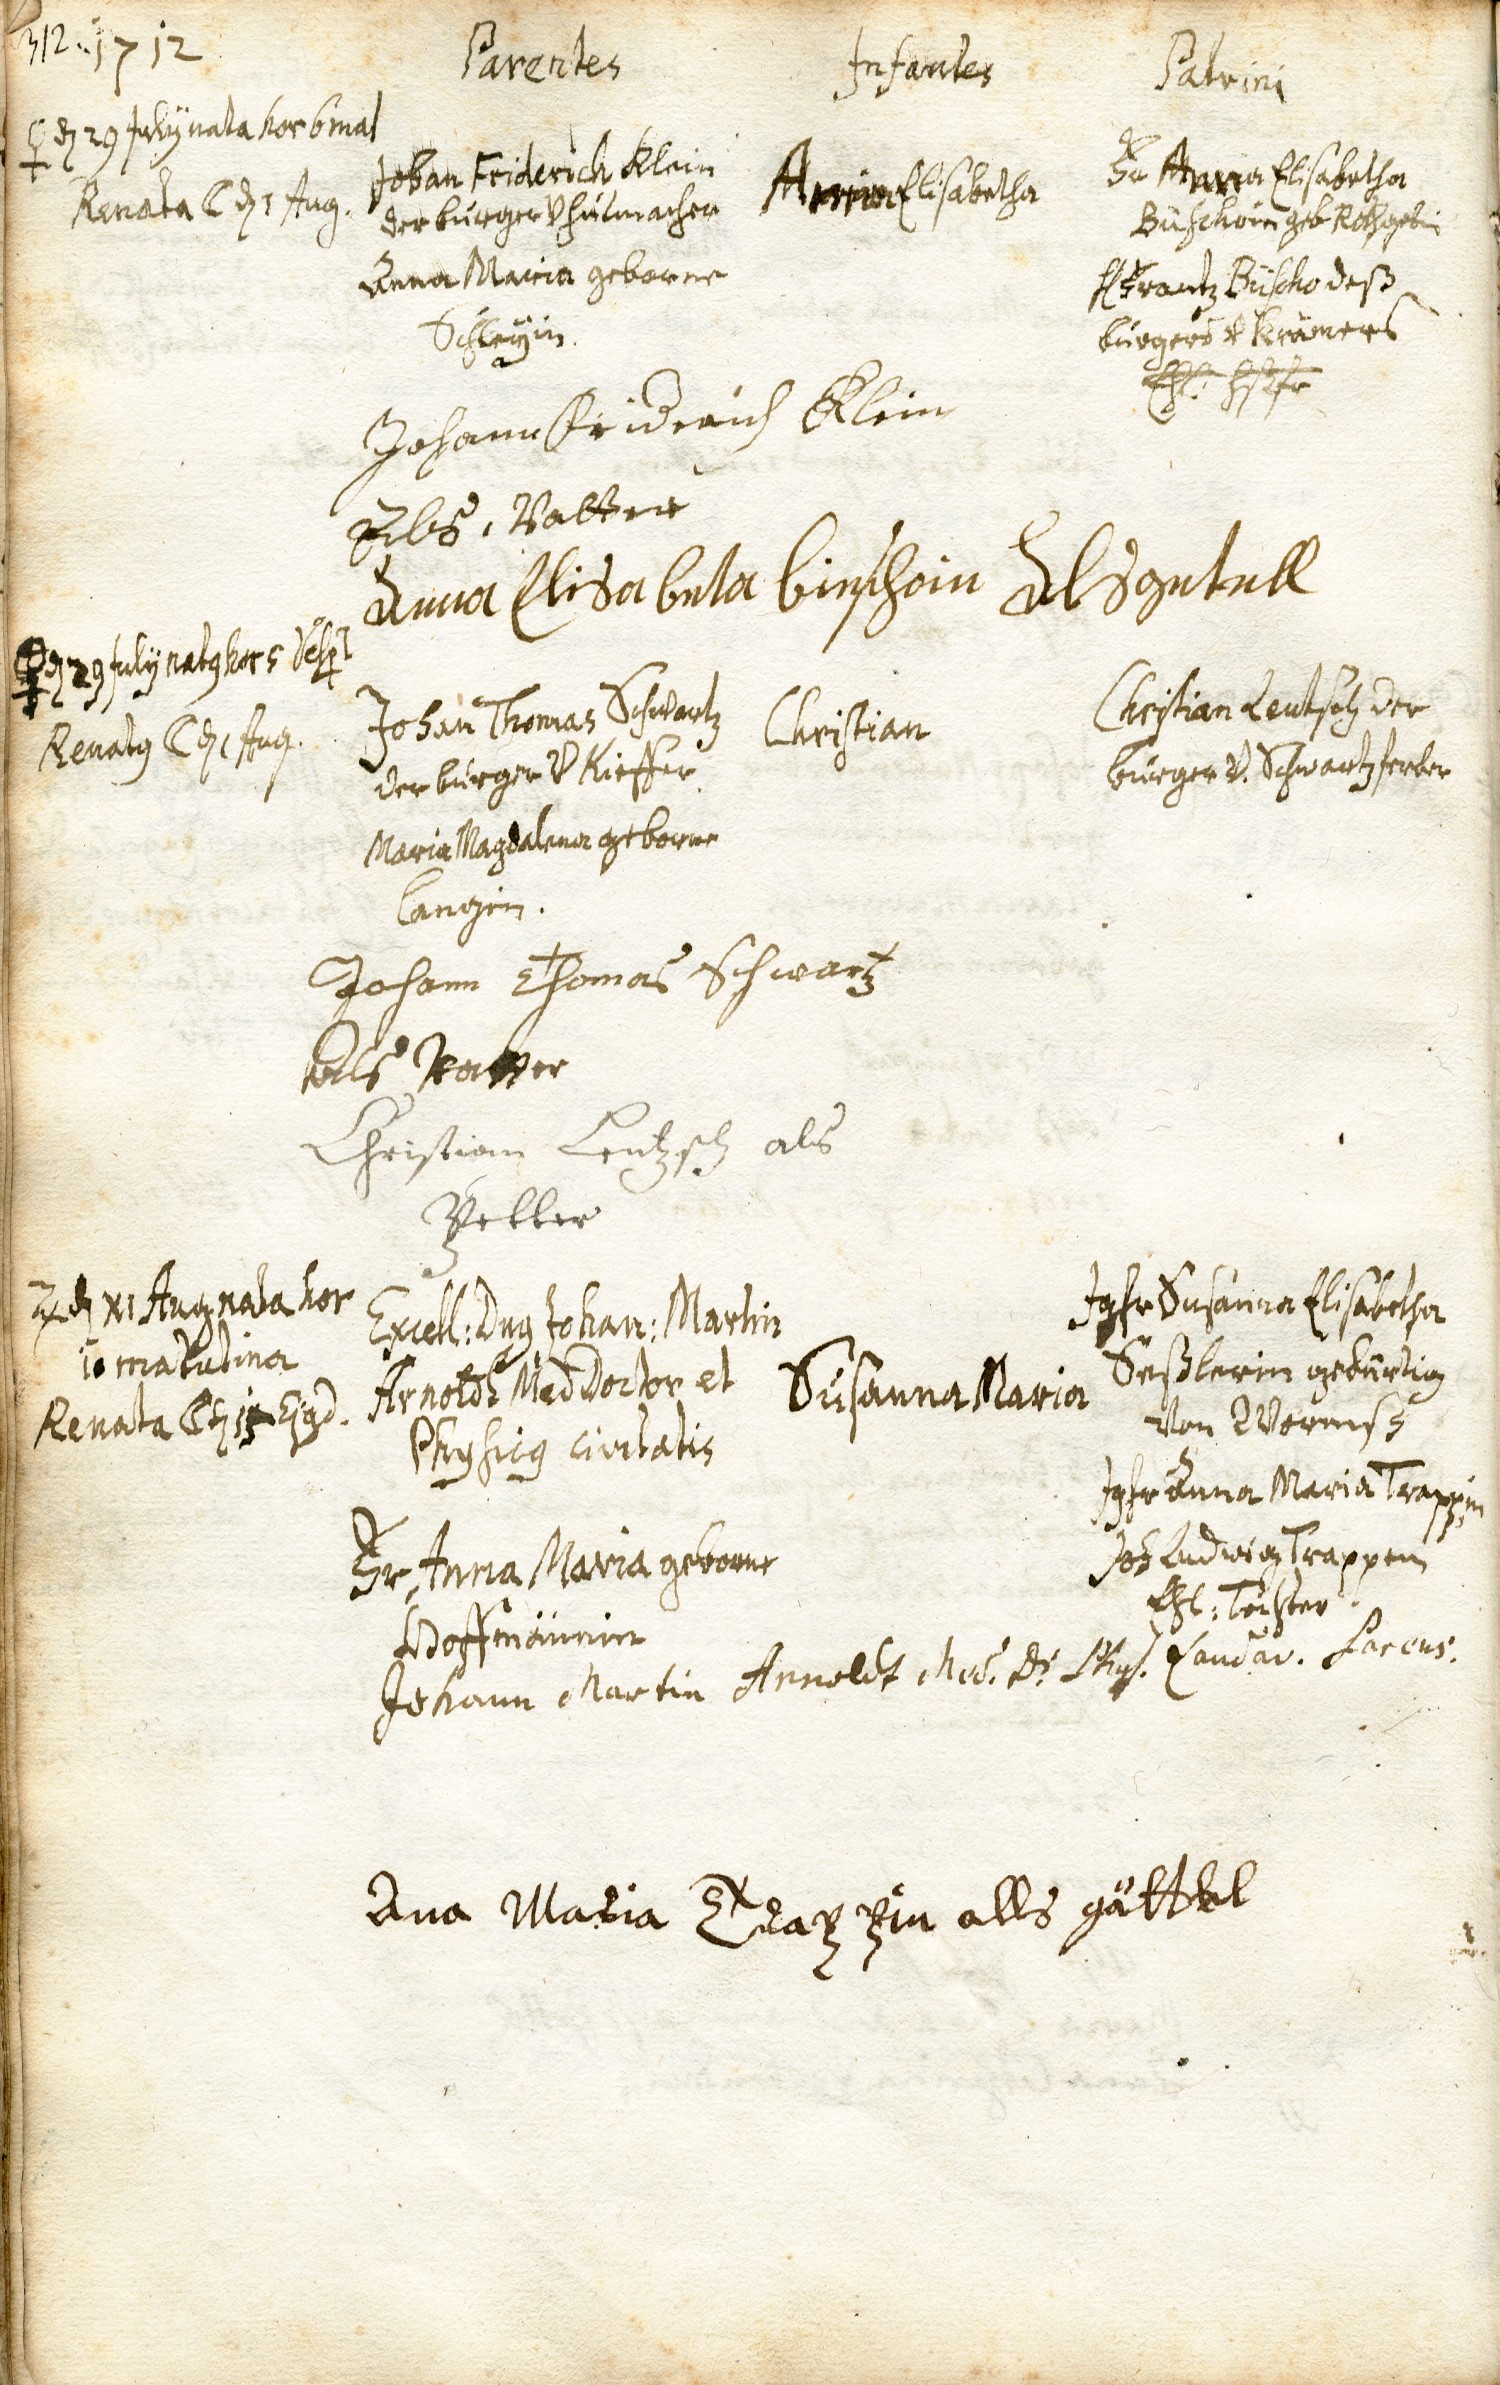 312. 1712
Parentes
Infantes
Patrini
♀ d 29 July nata hor 6 mat
Renata ☾ d 1 Aug.
Johan Friderich Klein
der burger v hutmacher
Anna Maria geborne
Schleyin.
Anna Elisabetha
Fr Anna Elisabetha
Büschoin geb
Frantz Büscho deß
burgers v Krämers
Johann Fridrich Klein
Als, Vatter
Anna Elisabeta büschoin Als getell
♀ d 29 July natq hor 5 Vesp
Renatq ☾ d 1 Aug.
Johan Thomas Schwartz
der burger v Kieffer
Maria Magdalena geborne
Langin.
Christian
Christian Leutsch der
burger v. Schwartzferber
Johann Thomas Schwartz
als Vatter
Christian Leutzsch als
Petter
♃ d XI Aug nata hor
10 matutina
Renata ☾ d 15 Ejqd.
Excell: Dnq Johan: Martin
Arnoldt Med Doctor et
Physicq civitatis
Fr, Anna Maria geborne
Hoffmännin
Susanna Maria
Jgfr Susanna Elisabetha
Seßlerin gebürtig
von Wormbß
Jgfr Anna Maria Trappin
Joh Ludwig Trappen
Ehl: Tochter
Johann Martin Arnoldt Med. Dr. Phys. Landav. Parens.
Ana Maria Trappin alls göttel